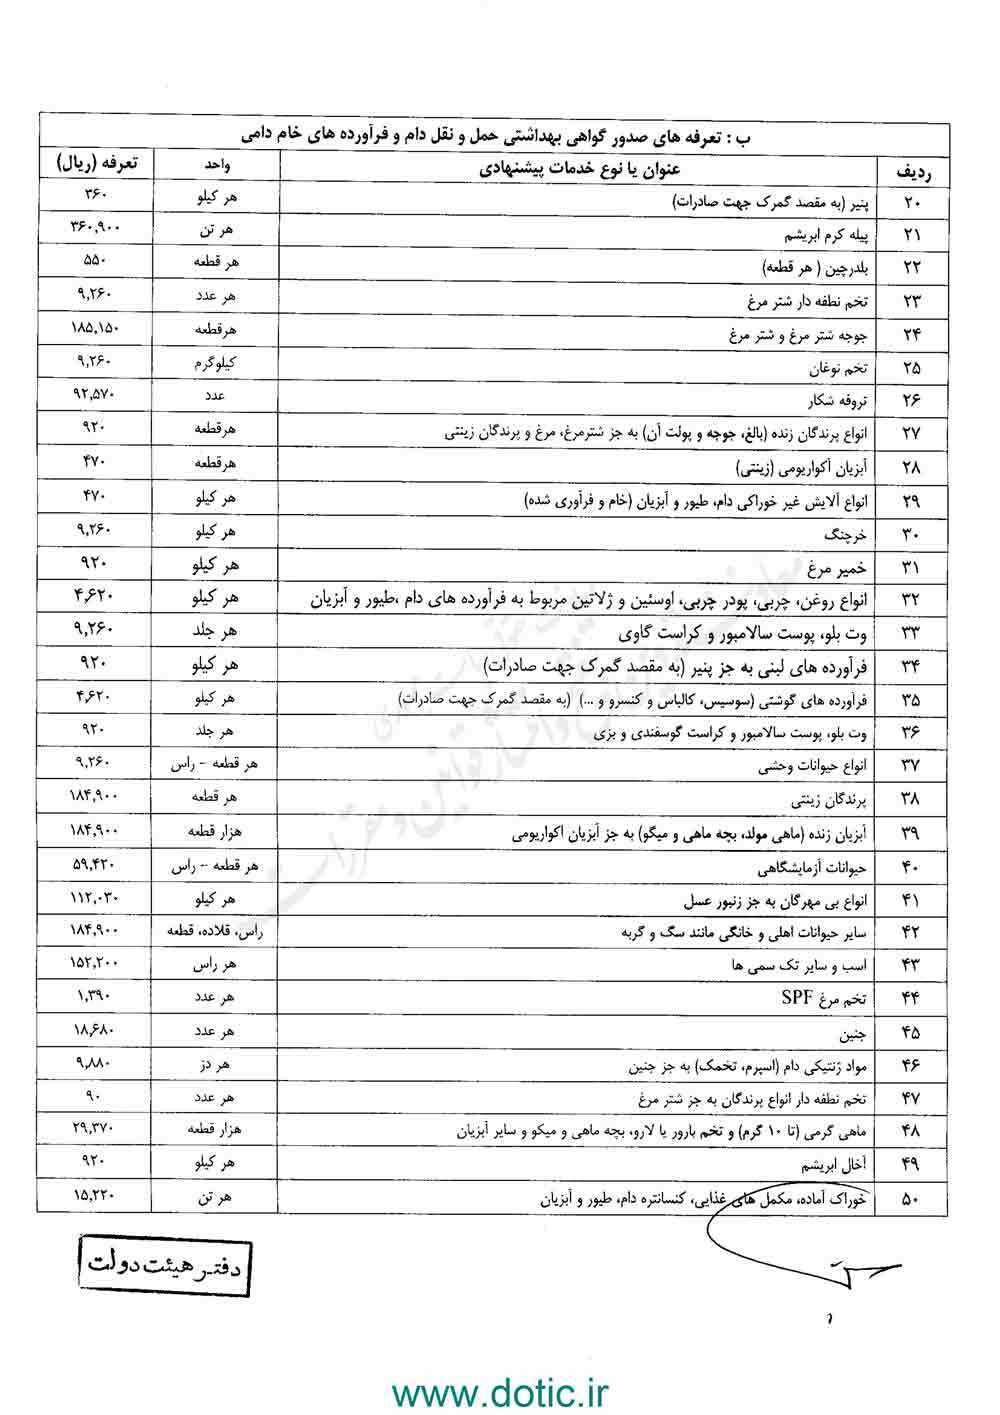 ب : تعرفه های صدور گواهی بهداشتی حمل و نقل دام و فرآورده های خام دامی
ردیف عنوان یا نوع خدمات پیشنهادی واحد تعرفه (ریال)
۲۰ پنیر (به مقصد گمرک جهت صادرات) هر کیلو ۳۶۰
۲۱ پیله کرم ابریشم هر تن ۳۶۰,۹۰۰
۲۲ بلدرچین ( هر قطعه) هر قطعه ۵۵۰
۲۳ تخم نطفه دار شتر مرغ هر عدد ۹,۲۶۰
۲۴ جوجه شتر مرغ و شتر مرغ هرقطعه ۱۸۵,۱۵۰
۲۵ تخم نوغان کیلوگرم ۹,۲۶۰
۲۶ تروفه شکار عدد ۹۲,۵۷۰
۲۷ انواع پرندگان زنده (بالغ، جوجه و پولت آن) به جز شترمرغ، مرغ و پرندگان زینتی هرقطعه ۹۲۰
۲۸ آبزیان آکواریومی (زینتی) هرقطعه ۴۷۰
۲۹ انواع آلایش غیر خوراکی دام، طیور و آبزیان (خام و فرآوری شده) هر کیلو ۴۷۰
۳۰ خرچنگ هر کیلو ۹,۲۶۰
۳۱ خمیر مرغ هر کیلو ۹۲۰
۳۲ انواع روغن، چربی، پودر چربی، اوسئین و ژلاتین مربوط به فرآورده های دام ،طیور و آبزیان هر کیلو ۴,۶۲۰
۳۳ وت بلو، پوست سالامبور و کراست گاوی هر جلد ۹,۲۶۰
۳۴ فرآورده های لبنی به جز پنیر (به مقصد گمرک جهت صادرات) هر کیلو ۹۲۰
۳۵ فرآورده های گوشتی (سوسیس، کالباس و کنسرو و ...) (به مقصد گمرک جهت صادرات) هر کیلو ۴,۶۲۰
۳۶ وت بلو، پوست سالامبور و کراست گوسفندی و بزی هر جلد ۹۲۰
۳۷ انواع حیوانات وحشی هر قطعه - راس ۹,۲۶۰
۳۸ پرندگان زینتی هر قطعه ۱۸۴,۹۰۰
۳۹ آبزیان زنده (ماهی مولد، بچه ماهی و میگو) به جز آبزیان اکواریومی هزار قطعه ۱۸۴,۹۰۰
۴۰ حیوانات آزمایشگاهی هر قطعه - راس ۵۹,۴۲۰
۴۱ انواع بی مهرگان به جز زنبور عسل هر کیلو ۱۱۲,۰۳۰
۴۲ سایر حیوانات اهلی و خانگی مانند سگ و گربه راس، قلاده، قطعه ۱۸۴,۹۰۰
۴۳ اسب و سایر تک سمی ها هر راس ۱۵۲,۲۰۰
۴۴ تخم مرغ SPF هر عدد ۱,۳۹۰
۴۵ جنین هر عدد ۱۸,۶۸۰
۴۶ مواد ژنتیکی دام (اسپرم، تخمک) به جز جنین هر دز ۹,۸۸۰
۴۷ تخم نطفه دار انواع پرندگان به جز شتر مرغ هر عدد ۹۰
۴۸ ماهی گرمی (تا ۱۰ گرم) و تخم بارور یا لارو، بچه ماهی و میکو و سایر آبزیان هزار قطعه ۲۹,۳۷۰
۴۹ آخال ابریشم هر کیلو ۹۲۰
۵۰ خوراک آماده، مکمل های غذایی، کنسانتره دام، طیور و آبزیان هر تن ۱۵,۲۲۰
دفتر هیئت دولت
www.dotic.ir